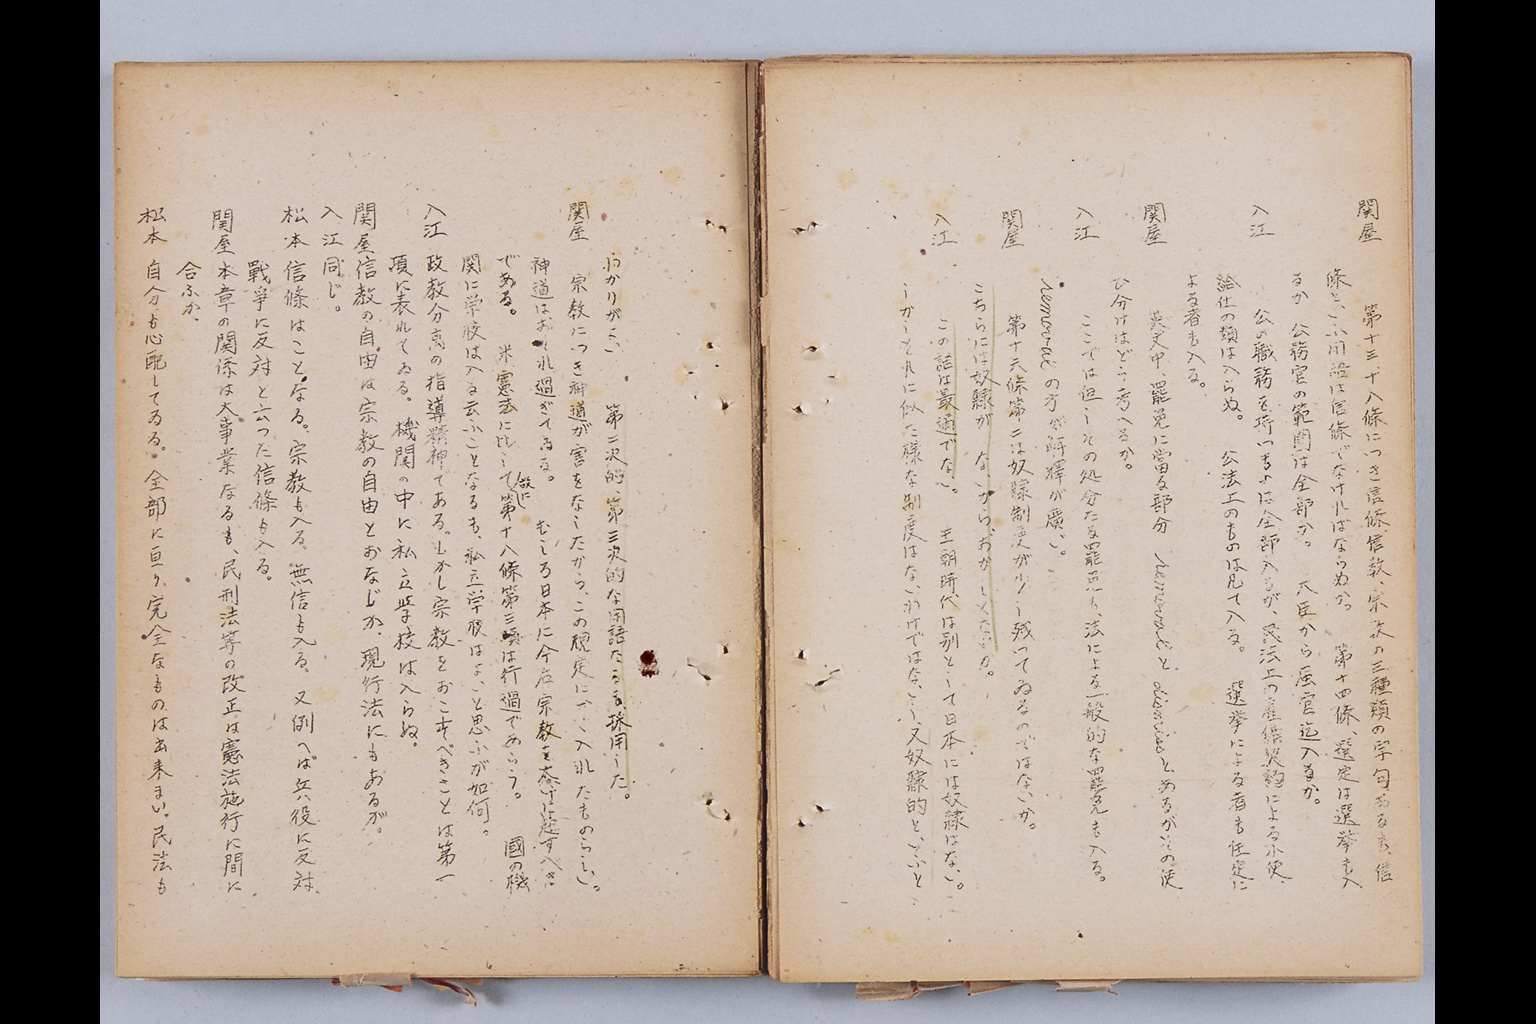 関屋　第十三、十八條につき信條、信教、宗教の三種類の字句あるも、信
條といふ用語は信條でなければならぬか。　第十四條、選定は選挙も入
るか　公務官の範囲は全部か。　大臣から雇官迄入るか。
入江　公の職務を持つ者は全部入るが、民法上の雇傭契約による小使、
給仕の類は入らぬ。　公法上のものは凡て入る。　選挙による者も任定に
よる者も入る。
関屋　英文中、罷免に當る部分　removalと dismissとあるがその使
ひ分けはどう考へるか。
入江　ここでは但しその処分たる罷免も、法による一般的な罷免も入る。
removalの方が解釋が廣い。
関屋　第十三條第二は奴隷制度が少し残つてゐるのではないか。
こちらには奴隷が　ないから、おかしくないか。
入江　この語は最適でない。　王朝時代は別として日本には奴隷はない。
しかしそれに似た様な制度はないわけではないし、又奴隷的といふと
わかりがよい　第二次的、第三次的な用語たるも、採用した。
関屋　宗教につき神道が害をなしたから、この規定について入れたものらしい。
神道はおそれ過ぎてゐる。　むしろ日本に今后宗教を
である。　米憲法に比して故に第十八條第三項は行過であらう。　國の機
関に学校は入る云ふことなるも、私立学校はよいと思ふが如何。
入江　政教分離の指導精神である。しかし宗教をおこすべきことは第一
項に表れてゐる。　機関の中に私立学校は入らぬ。
関屋　信教の自由は宗教の自由とおなじか、現行法にもあるが。
入江　同じ。
松本　信條はことなる。宗教も入る。無信も入る。又例へば兵役に反対、
戰爭に反対と云つた信條も入る。
関屋　本章の関係は大事業なるも、民刑法等の改正は憲法施行に間に
合ふか、
松本　自分も心配してゐる。全部に亘り、完全なものは出来まい。民法も